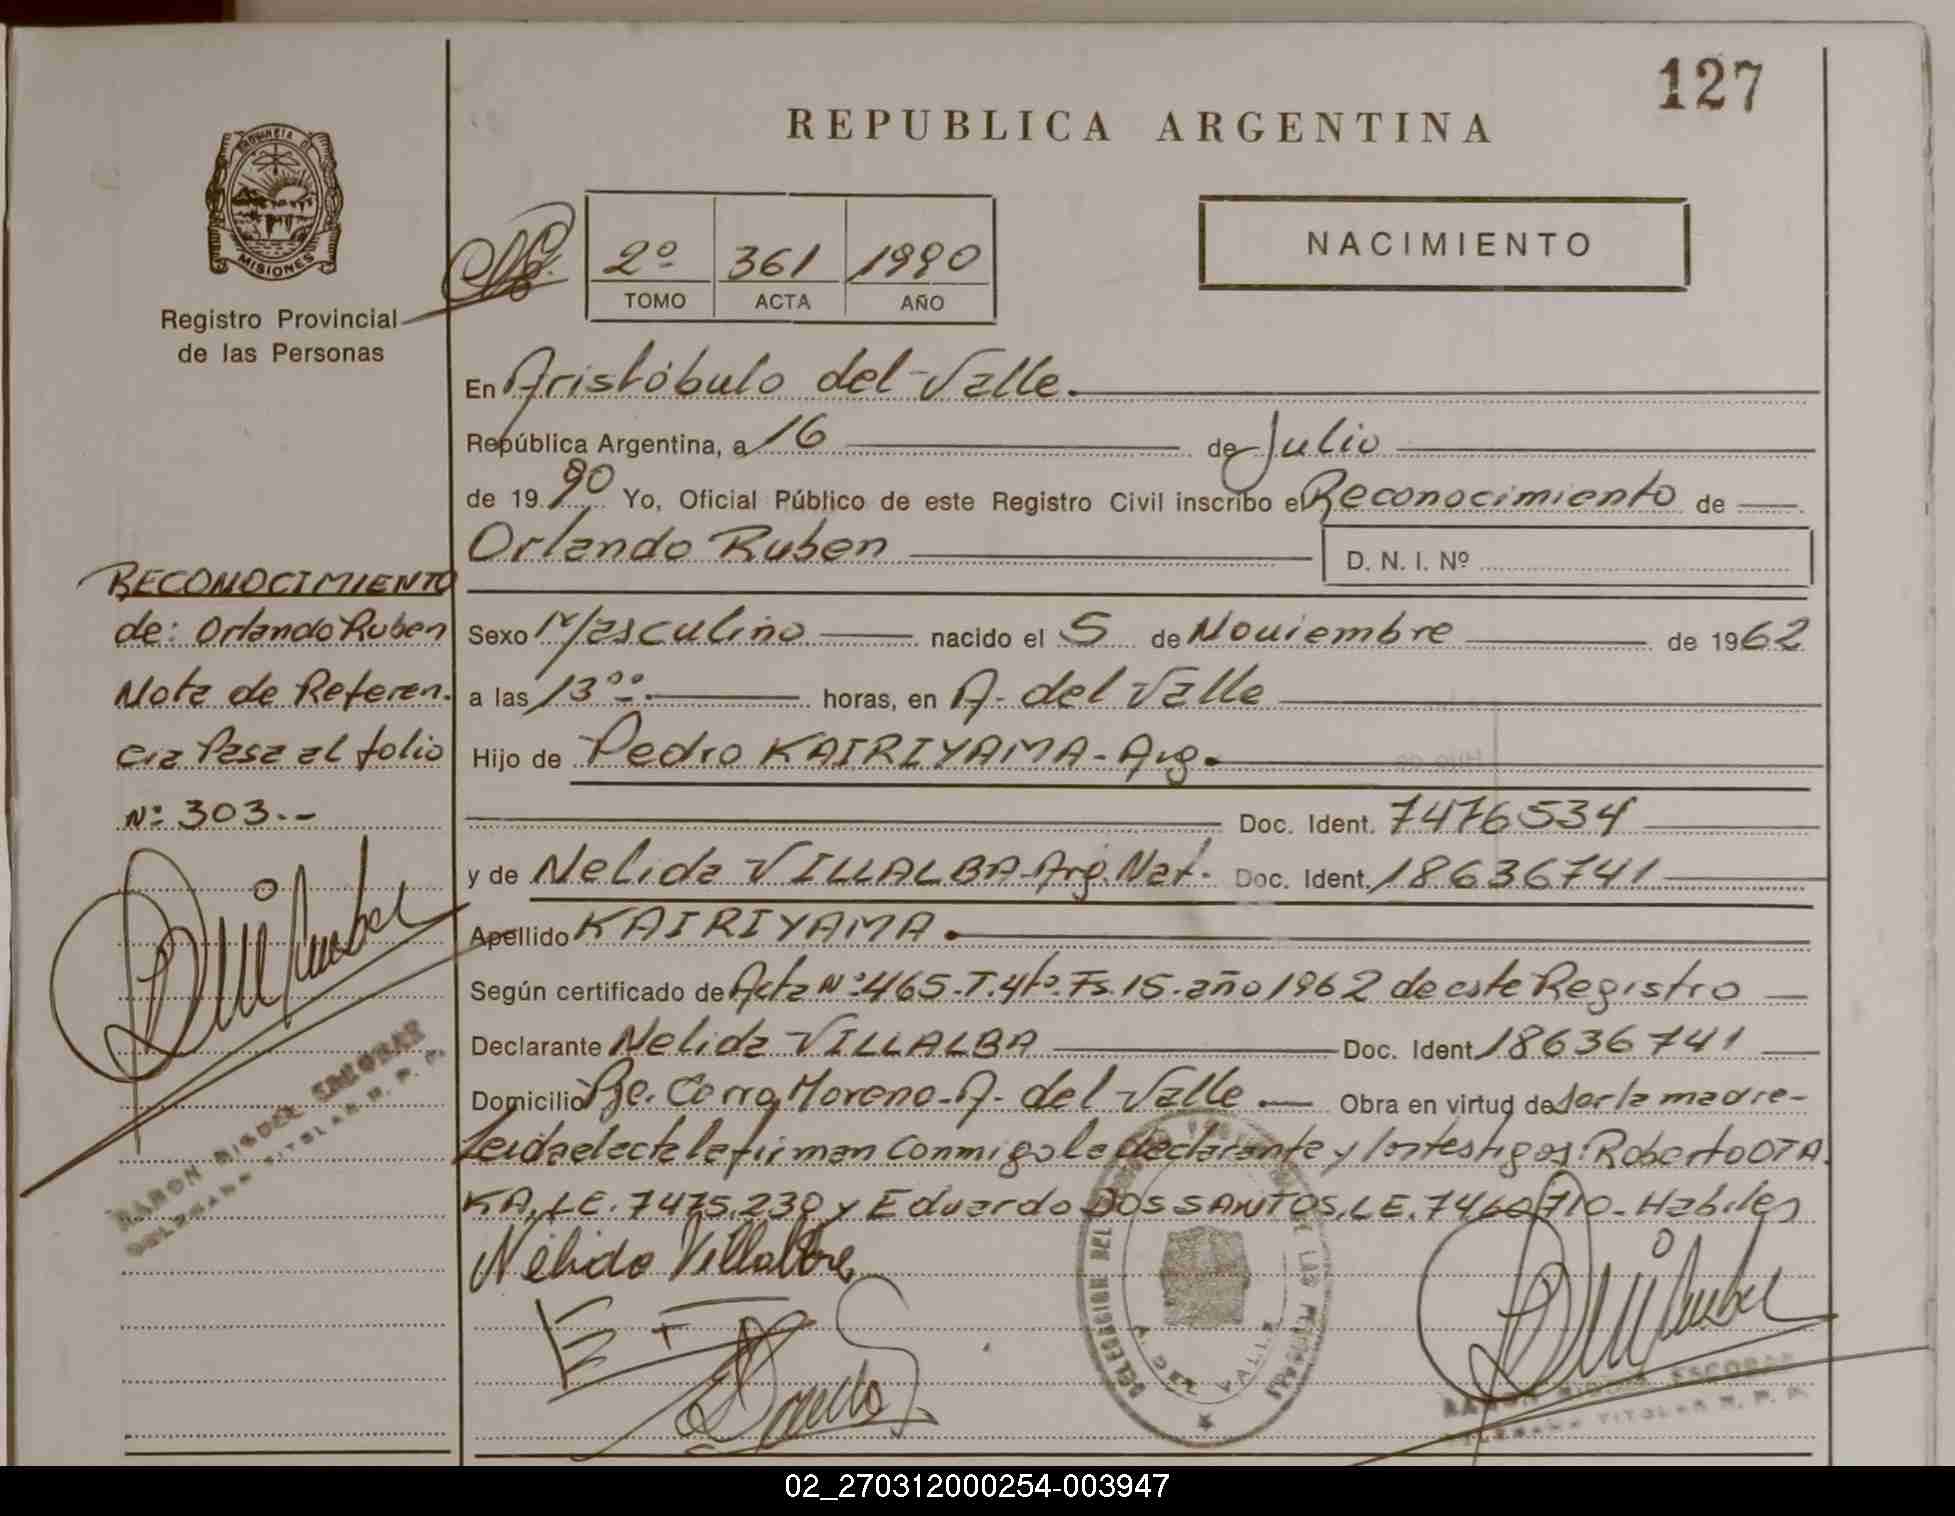 127
REPUBLICA ARGENTINA
PROVINCIA DE
MISIONES
Registro Provincial
de las Personas
2º 361 1990
TOMO ACTA AÑO
NACIMIENTO
En Aristóbulo del Valle.
República Argentina, a 16 de Julio
de 1990 Yo, Oficial Público de este Registro Civil inscribo el Reconocimiento de
Orlando Ruben D. N. I. Nº
RECONOCIMIENTO
de: Orlando Ruben
Nota de Referen.
cia Pasa al folio
Nº: 303.-
Sexo Masculino nacido el 5 de Noviembre de 1962
a las 13ºº. horas, en A. del Valle
Hijo de Pedro KAIRIYAMA - Arg.
Doc. Ident. 7476534
y de Nelida VILLALBA Arg. Nat. Doc. Ident. 18636741
Apellido KAIRIYAMA.
Según certificado de Acta Nº:465.T.4to.Fs.15.año 1962 de este Registro
Declarante Nelida VILLALBA Doc. Ident. 18636741
Domicilio Pje. Cerro Moreno - A. del Valle. Obra en virtud de ser la madre-
Leida el acta la firman conmigo la declarante y los testigos: Roberto OTA
KA, LE. 7475.230 y Eduardo DOS SANTOS, LE. 7460710. Habiles
Nélida Villalba
RAMON MIGUEL ESCOBAR
DELEGADO TITULAR R. P. P.
DELEGACION DEL DE LAS PERSONAS
A. DEL VALLE
RAMON MIGUEL ESCOBAR
DELEGADO TITULAR R. P. P.
02_270312000254-003947